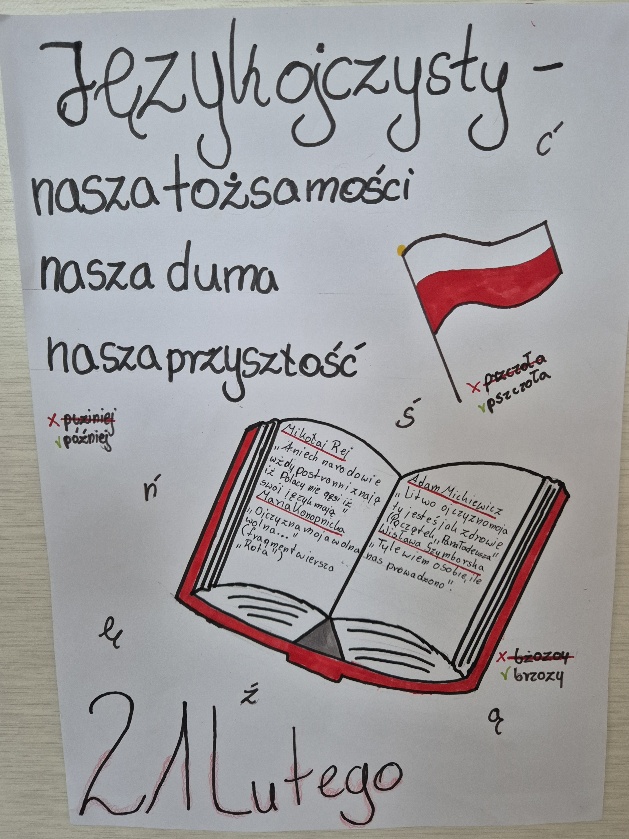 Język ojczysty -
ć
nasza tożsamości
nasza duma
nasza przyszłość
x pszczoła
√ pszczoła
ś
x puziniej
√ później
ń
Mikołaj Rej
„Aniech narodowie
wżdy postronni znają
iż Polacy nie gęsi iż
swój język mają"
Maria Konopnicka
„Ojczyzna moja wolna
wolna..."
(fragment wiersza
„Rota")
Adam Mickiewicz
„Litwo ojczyzno moja
ty jesteś jak zdrowie
(Początek „Pana Tadeusza"
Wisława Szymborska
„Tyle wiem o sobie, ile
nas prowadzono".
ę
x bżozoy
√ brzozy
ź
ą
21 Lutego